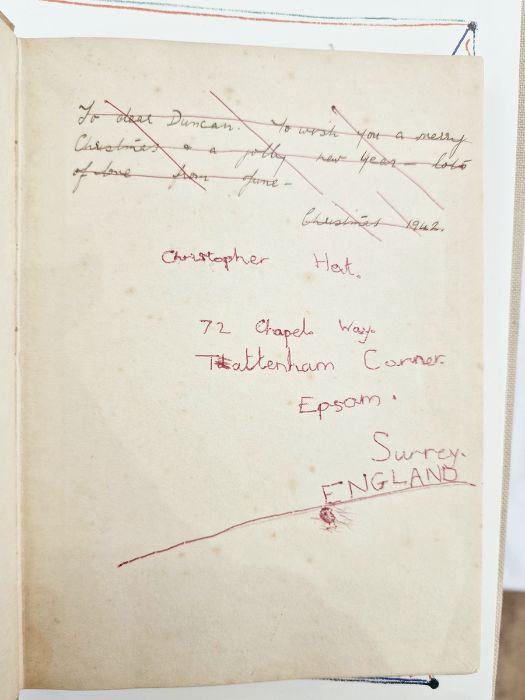 To dear Duncan. To wish you a merry
Christmas & a jolly new year — lots
of love from June —
Christmas 1942.
Christopher Hat.
72 Chapel Way.
Tattenham Corner.
Epsom.
Surrey.
ENGLAND